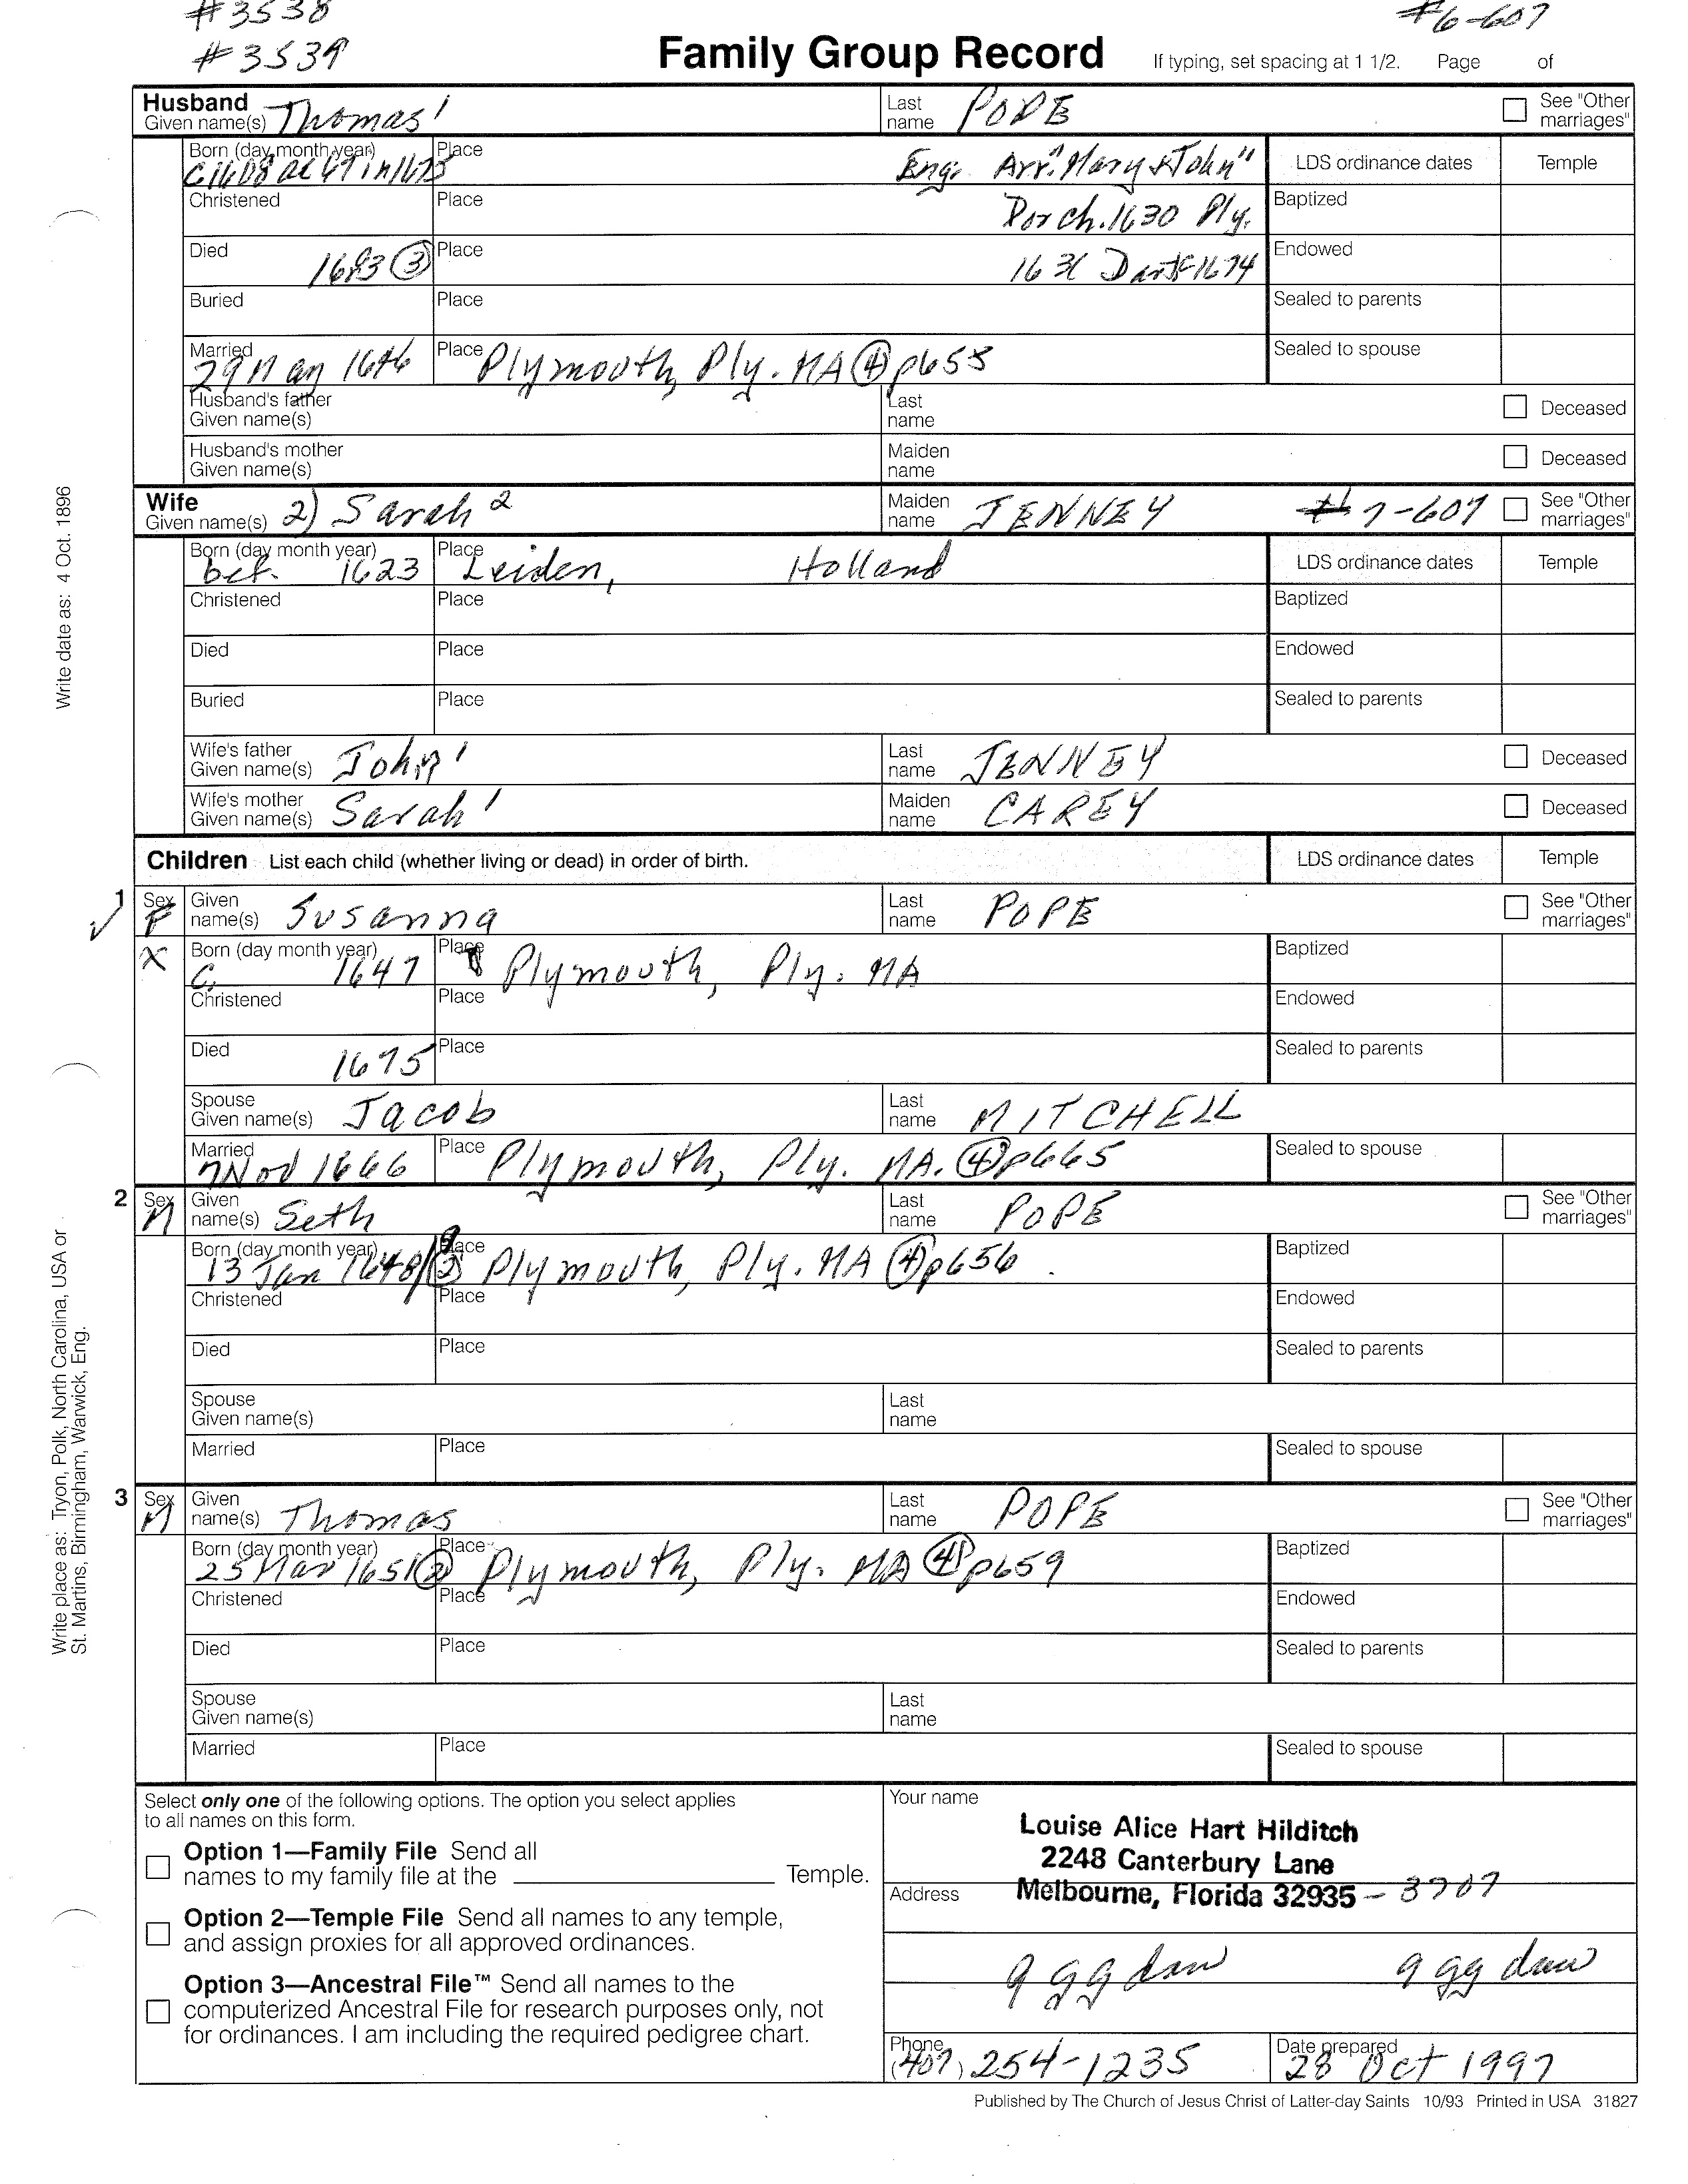 #3538 #6-607
#3539 Family Group Record If typing, set spacing at 1 1/2. Page of
Husband Given name(s) Thomas¹ Last name POPE See "Other marriages"
Born (day month year) C1608 ae 67 in 1675 Place Eng. Arr. "Mary & John" LDS ordinance dates Temple
Christened Place Dorch. 1630 Ply. Baptized
Died 1683 ③ Place 1631 Dart C1674 Endowed
Buried Place Sealed to parents
Married 29 May 1646 Place Plymouth, Ply. MA ④ p655 Sealed to spouse
Husband's father Given name(s) Last name Deceased
Husband's mother Given name(s) Maiden name Deceased
Wife Given name(s) 2) Sarah² Maiden name JENNEY #7-607 See "Other marriages"
Born (day month year) bef. 1623 Place Leiden, Holland LDS ordinance dates Temple
Christened Place Baptized
Died Place Endowed
Buried Place Sealed to parents
Wife's father Given name(s) John¹ Last name JENNEY Deceased
Wife's mother Given name(s) Sarah¹ Maiden name CAREY Deceased
Children List each child (whether living or dead) in order of birth. LDS ordinance dates Temple
1 Sex F Given name(s) Susanna Last name POPE See "Other marriages"
X Born (day month year) C. 1647 Place Plymouth, Ply. MA Baptized
Christened Place Endowed
Died 1675 Place Sealed to parents
Spouse Given name(s) Jacob Last name MITCHELL
Married 7 Nov 1666 Place Plymouth, Ply. MA. ④ p665 Sealed to spouse
2 Sex M Given name(s) Seth Last name POPE See "Other marriages"
Born (day month year) 13 Jan 1648/9 Place Plymouth, Ply. MA ④ p656 Baptized
Christened Place Endowed
Died Place Sealed to parents
Spouse Given name(s) Last name
Married Place Sealed to spouse
3 Sex M Given name(s) Thomas Last name POPE See "Other marriages"
Born (day month year) 25 Mar 1651 Place Plymouth, Ply. MA ④ p659 Baptized
Christened Place Endowed
Died Place Sealed to parents
Spouse Given name(s) Last name
Married Place Sealed to spouse
Select only one of the following options. The option you select applies
to all names on this form.
Option 1—Family File Send all
names to my family file at the Temple.
Option 2—Temple File Send all names to any temple,
and assign proxies for all approved ordinances.
Option 3—Ancestral File™ Send all names to the
computerized Ancestral File for research purposes only, not
for ordinances. I am including the required pedigree chart.
Your name
Louise Alice Hart Hilditch
2248 Canterbury Lane
Address Melbourne, Florida 32935 - 3707
9 gg dau 9 gg dau
Phone (407) 254-1235 Date prepared 28 Oct 1997
Published by The Church of Jesus Christ of Latter-day Saints 10/93 Printed in USA 31827
Write date as: 4 Oct. 1896
Write place as: Tryon, Polk, North Carolina, USA or
St. Martins, Birmingham, Warwick, Eng.